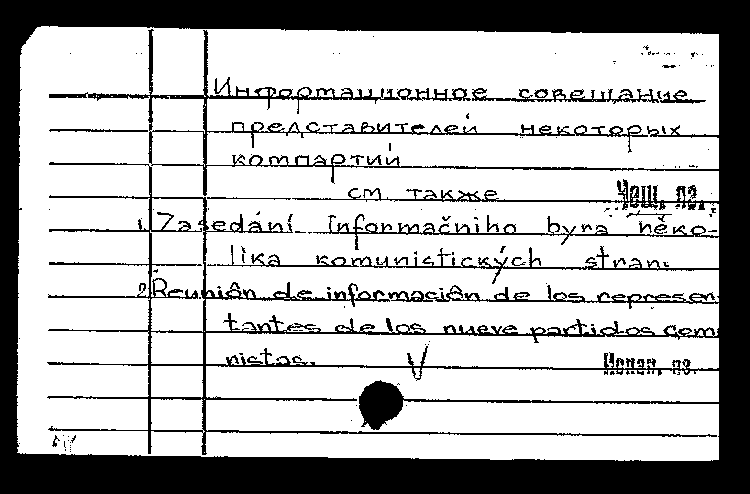 Информационное совещание
представителей некоторых
компартий
см также
Чеш. яз.
1. Zasedání Informačniho byra něko-
lika komunistických stran.
2. Reunión de información de los represen
tantes de los nueve partidos comu
nistas. V
Испан. яз.